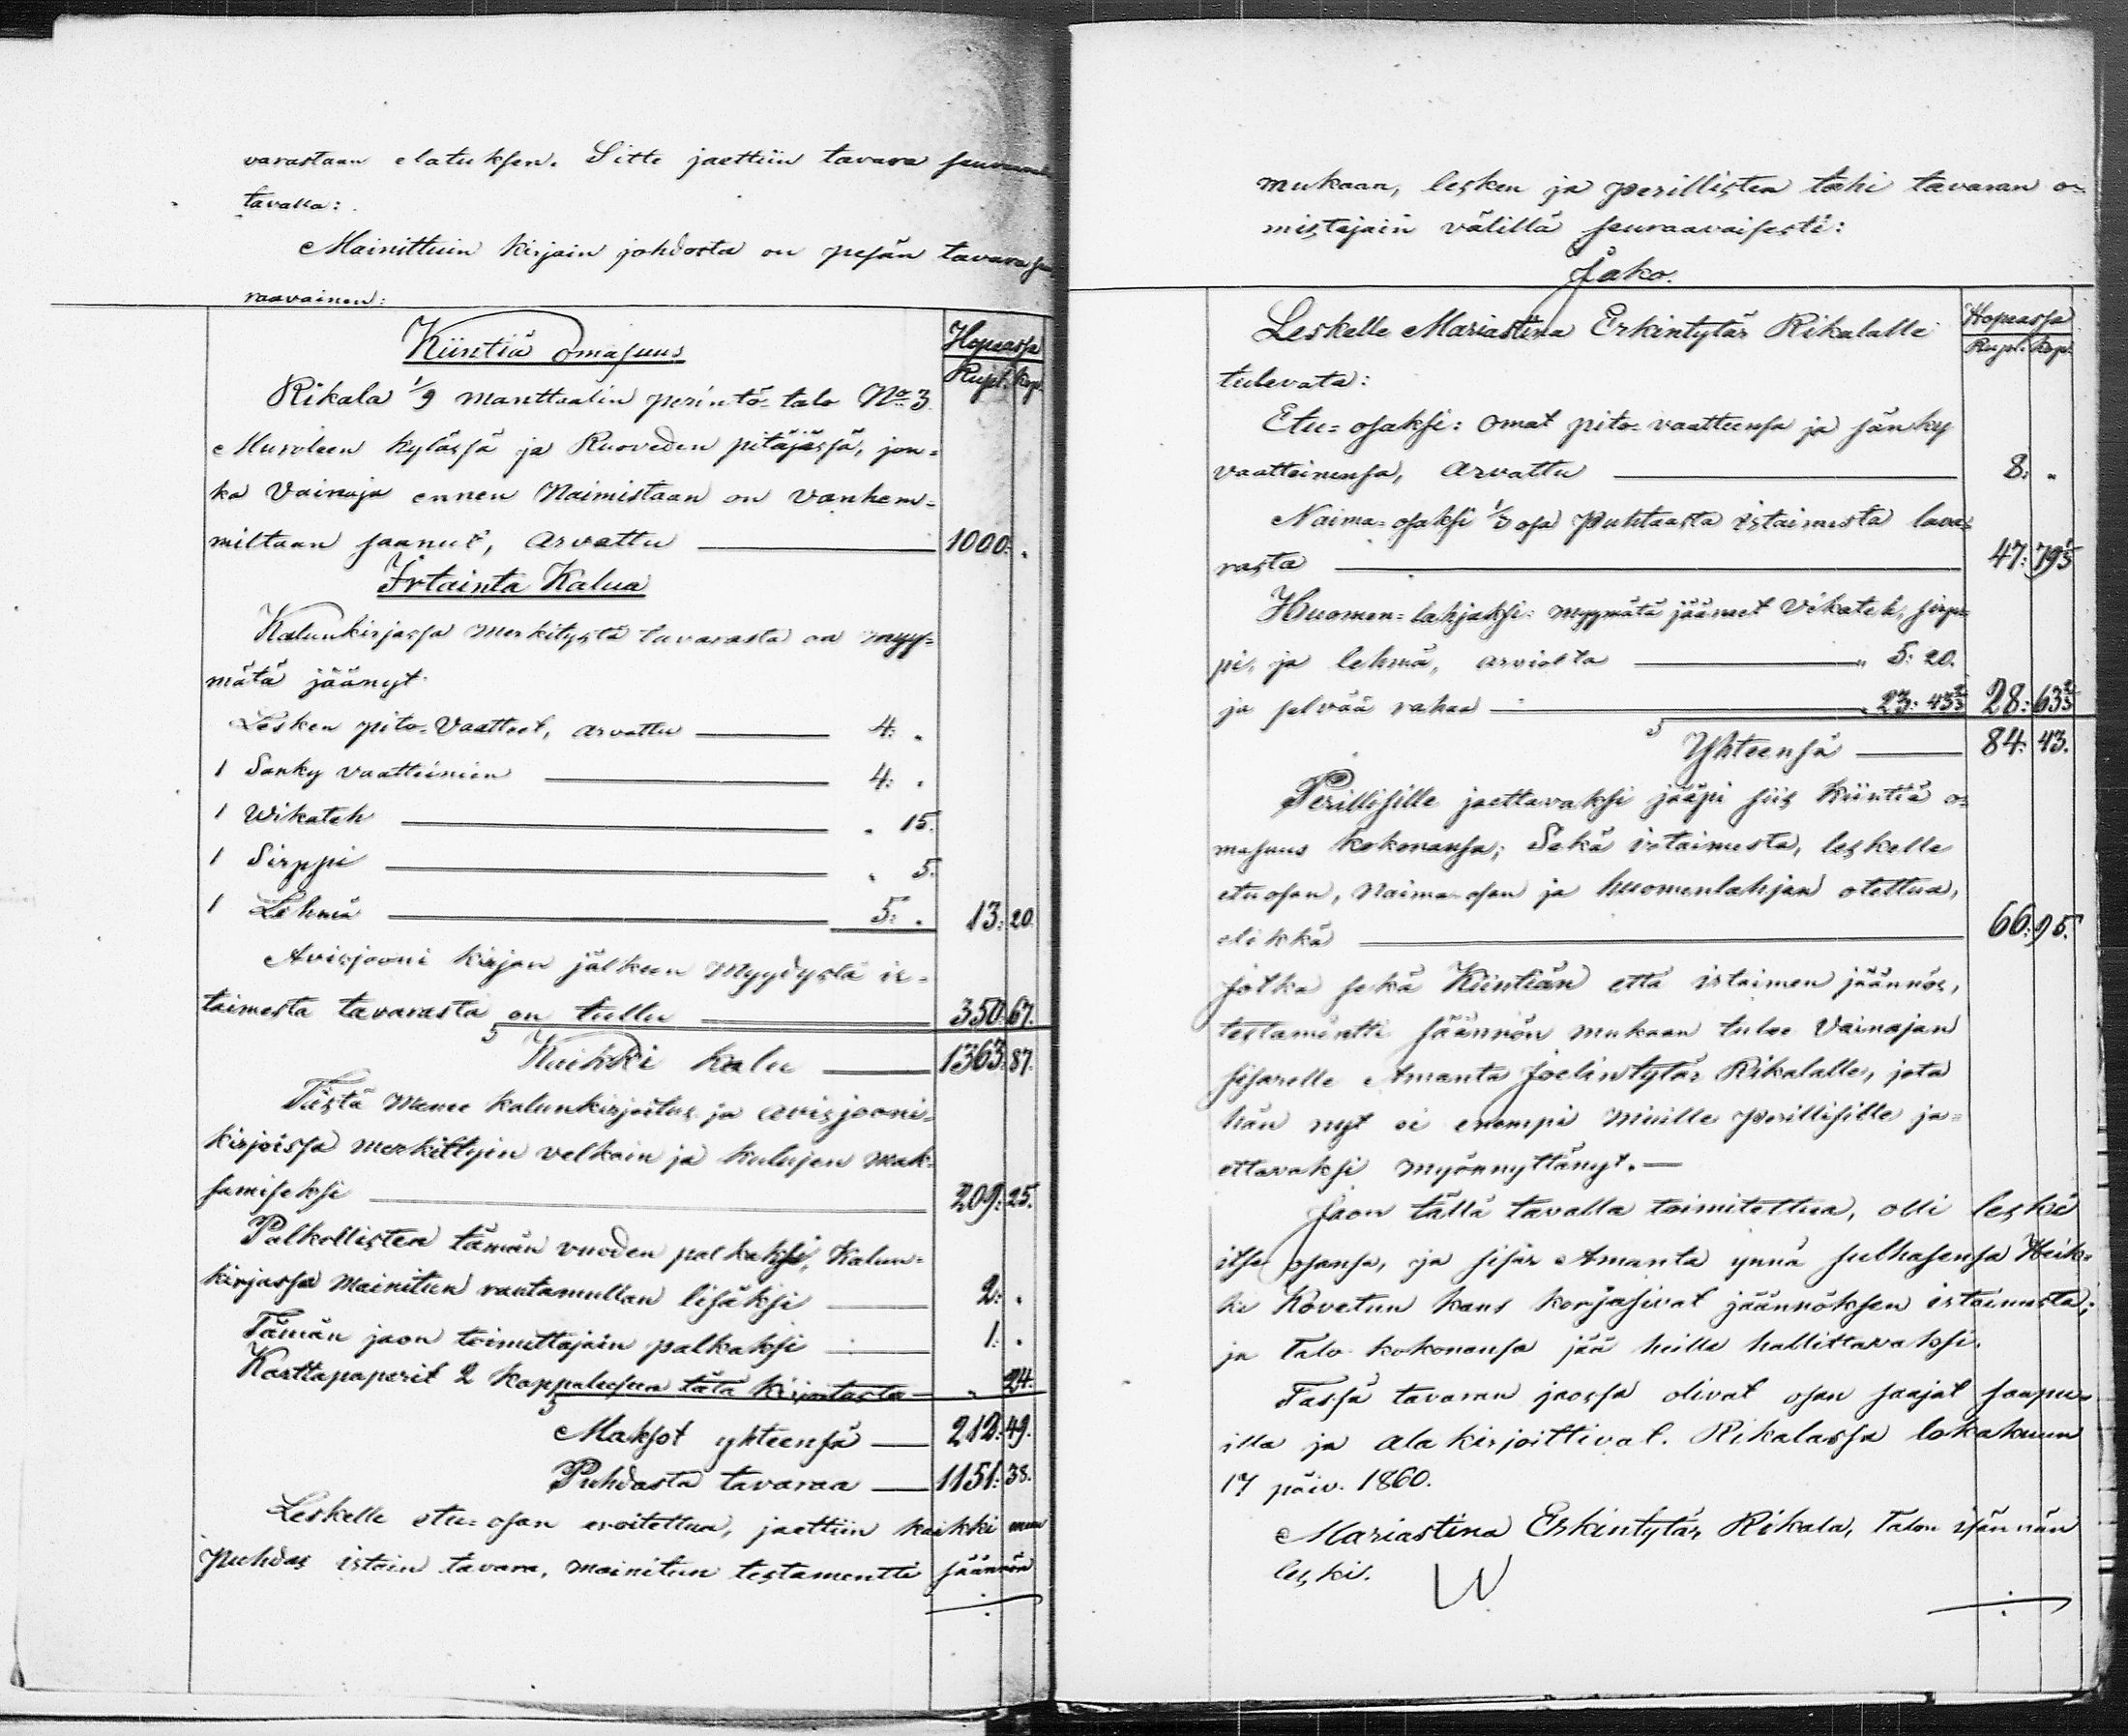 varastaan elatuksen. Sitte jaettiin tavara seuraavalla
tavalla:
Mainittuin kirjain johdosta on pesän tavara seu-
raavainen:
Kiintiä omasuus
Hopeassa
Rupl. kop.
Rikala 1/9 manttaalin perintö-talo No 3
Muroleen kylässä ja Ruoveden pitäjässä, jon=
ka Vainaja ennen Naimistaan on vanhem=
miltaan saanut, arvattu 1000: "
Irtainta Kalua
Kalunkirjassa merkitystä tavarasta on myy=
mätä jäänyt
Lesken pito-Vaatteet, arvattu 4: "
1 Sänky vaatteinien 4: "
1 Wikateh " 15.
1 Sirppi " 5.
1 Lehmä 5: " 13: 20.
Avisjooni kirjan jälkeen Myydystä ir=
taimesta tavarasta on tullu 350: 67.
Kaikki kalu 1363: 87.
Tästä Menee kalunkirjoitus ja avisjooni=
kirjoissa merkittyin velkain ja kulujen mak=
samiseksi 209: 25.
Palkollisten tämän vuoden palkaksi, Kalun=
kirjassa Mainitun rantamullan lisäksi 2: "
Tämän jaon toimittajain palkaksi 1: "
Karttapaperit 2 kappaleeseen tätä kirjoitusta " 24.
Maksot yhteensä 212: 49.
Puhdasta tavaraa 1151: 38.
Leskelle etu=osan eroitettua, jaettiin kaikki muu
Puhdas irtain tavara, mainitun testamentti säännön
mukaan, lesken ja perillisten tahi tavaran o=
mistajain välillä seuraavaisesti:
Jako.
Hopeassa
Rupl. kop.
Leskelle Mariastina Erkintytär Rikalalle
tulevata:
Etu=osaksi: omat pito-vaatteensa ja sänky
vaatteinensa, arvattu 8: "
Naima=osaksi 1/3 osa Puhtaasta irtaimesta tava=
rasta 47: 79 1/3
Huomen=lahjaksi: myymätä jääneet Vikateh, sirp=
pi, ja lehmä, arviolta " 5: 20.
ja selvää rahaa " 23: 43 2/3 28: 63 2/3
Yhteensä 84: 43.
Perillisille jaettavaksi jääpi siis Kiintiä o=
masuus kokonansa; Sekä irtaimesta, leskelle
etuosan, Naima-osan ja huomenlahjan otettua,
elikkä 66: 95.
Jotka sekä Kiintiän että irtaimen jäännös,
testamentti säännön mukaan tulee Vainajan
sisarelle Amanta Joelintytär Rikalalle, jota
hän nyt ei enempi Muille perillisille ja=
ettavaksi myönnyttänyt.—
Jaon tällä tavalla toimitettua, otti leski
itse osansa, ja sisär Amanta ynnä sulhasensa Heik=
ki Kovetun kans korjasivat jäännöksen irtaimesta;
ja Talo kokonansa jää heille hallittavaksi.
Tässä tavaran jaossa olivat osan saajat saapu=
illa ja ala kirjoittivat. Rikalassa lokakuun
17 päiv. 1860.
Mariastina Erkintytär Rikala, Talon isännän
leski.